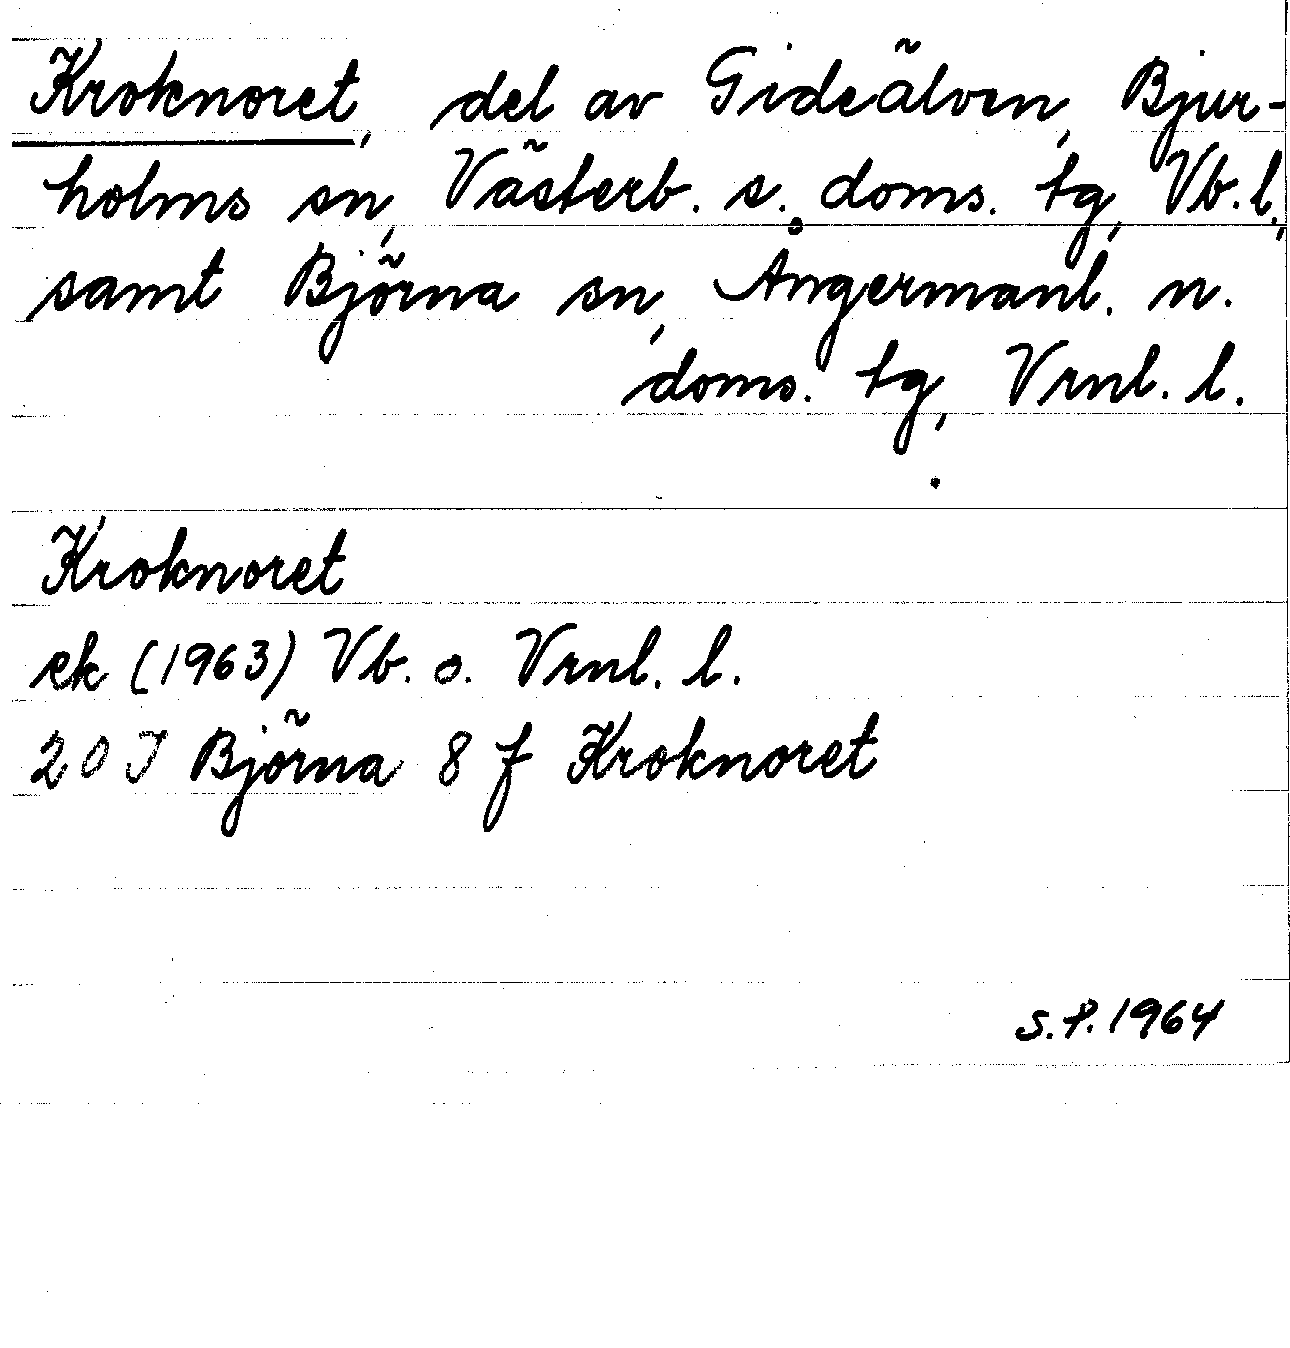 Kroknoret, del av Gideälven, Bjur-
holms sn, Västerb. s. doms. tg, Vb. l.,
samt Björna sn, Ångermanl. n.
doms. tg, Vrnl. l.
Kroknoret
ek (1963) Vb. o. Vrnl. l.
20 J Björna 8 f Kroknoret
S.P. 1964